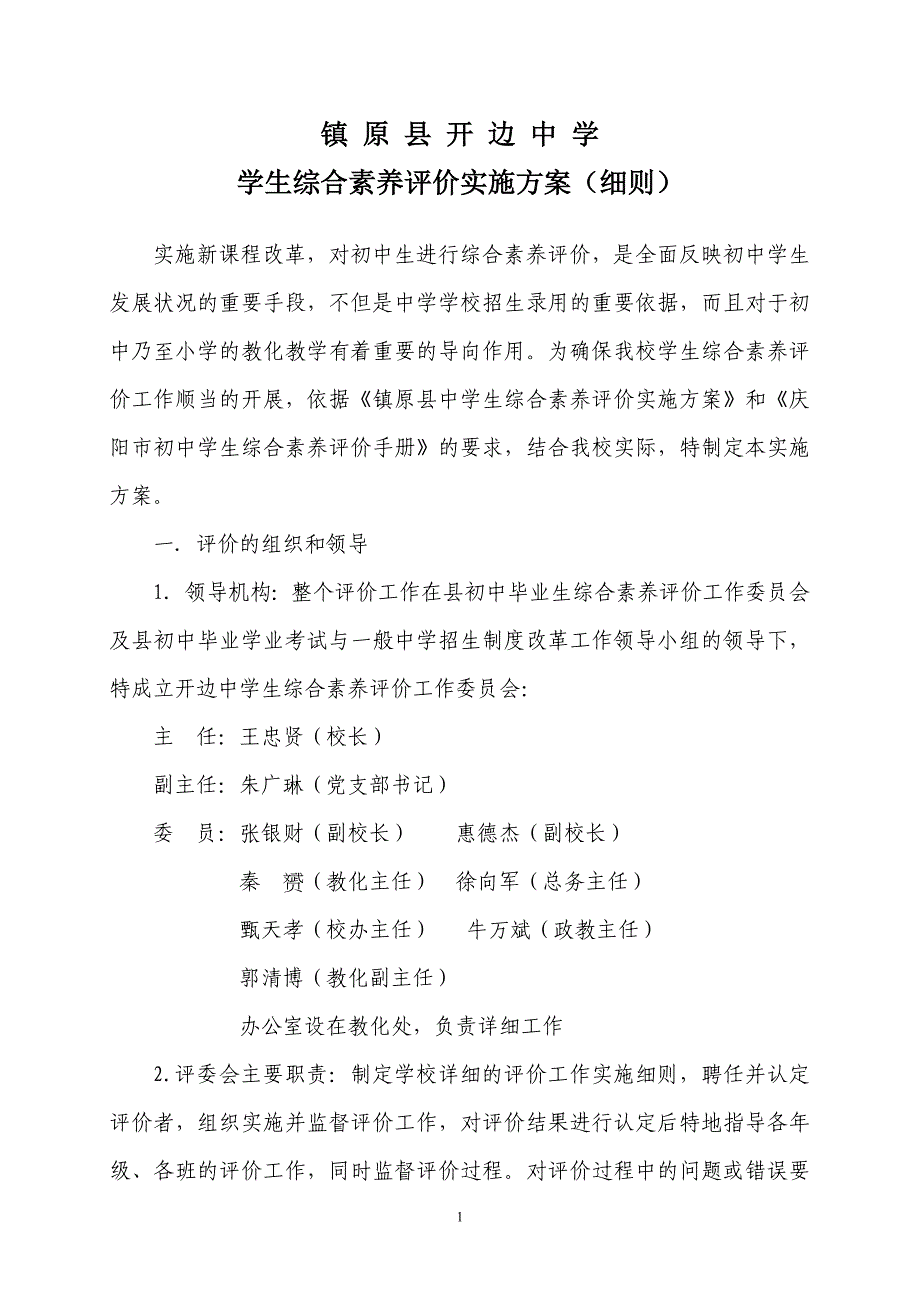 镇 原 县 开 边 中 学
学生综合素养评价实施方案（细则）
实施新课程改革，对初中生进行综合素养评价，是全面反映初中学生
发展状况的重要手段，不但是中学学校招生录用的重要依据，而且对于初
中乃至小学的教化教学有着重要的导向作用。为确保我校学生综合素养评
价工作顺当的开展，依据《镇原县中学生综合素养评价实施方案》和《庆
阳市初中学生综合素养评价手册》的要求，结合我校实际，特制定本实施
方案。
一．评价的组织和领导
1．领导机构：整个评价工作在县初中毕业生综合素养评价工作委员会
及县初中毕业学业考试与一般中学招生制度改革工作领导小组的领导下，
特成立开边中学生综合素养评价工作委员会：
主　任：王忠贤（校长）
副主任：朱广琳（党支部书记）
委　员：张银财（副校长）　　惠德杰（副校长）
秦　赟（教化主任）　徐向军（总务主任）
甄天孝（校办主任）　　牛万斌（政教主任）
郭清博（教化副主任）
办公室设在教化处，负责详细工作
2.评委会主要职责：制定学校详细的评价工作实施细则，聘任并认定
评价者，组织实施并监督评价工作，对评价结果进行认定后特地指导各年
级、各班的评价工作，同时监督评价过程。对评价过程中的问题或错误要
1